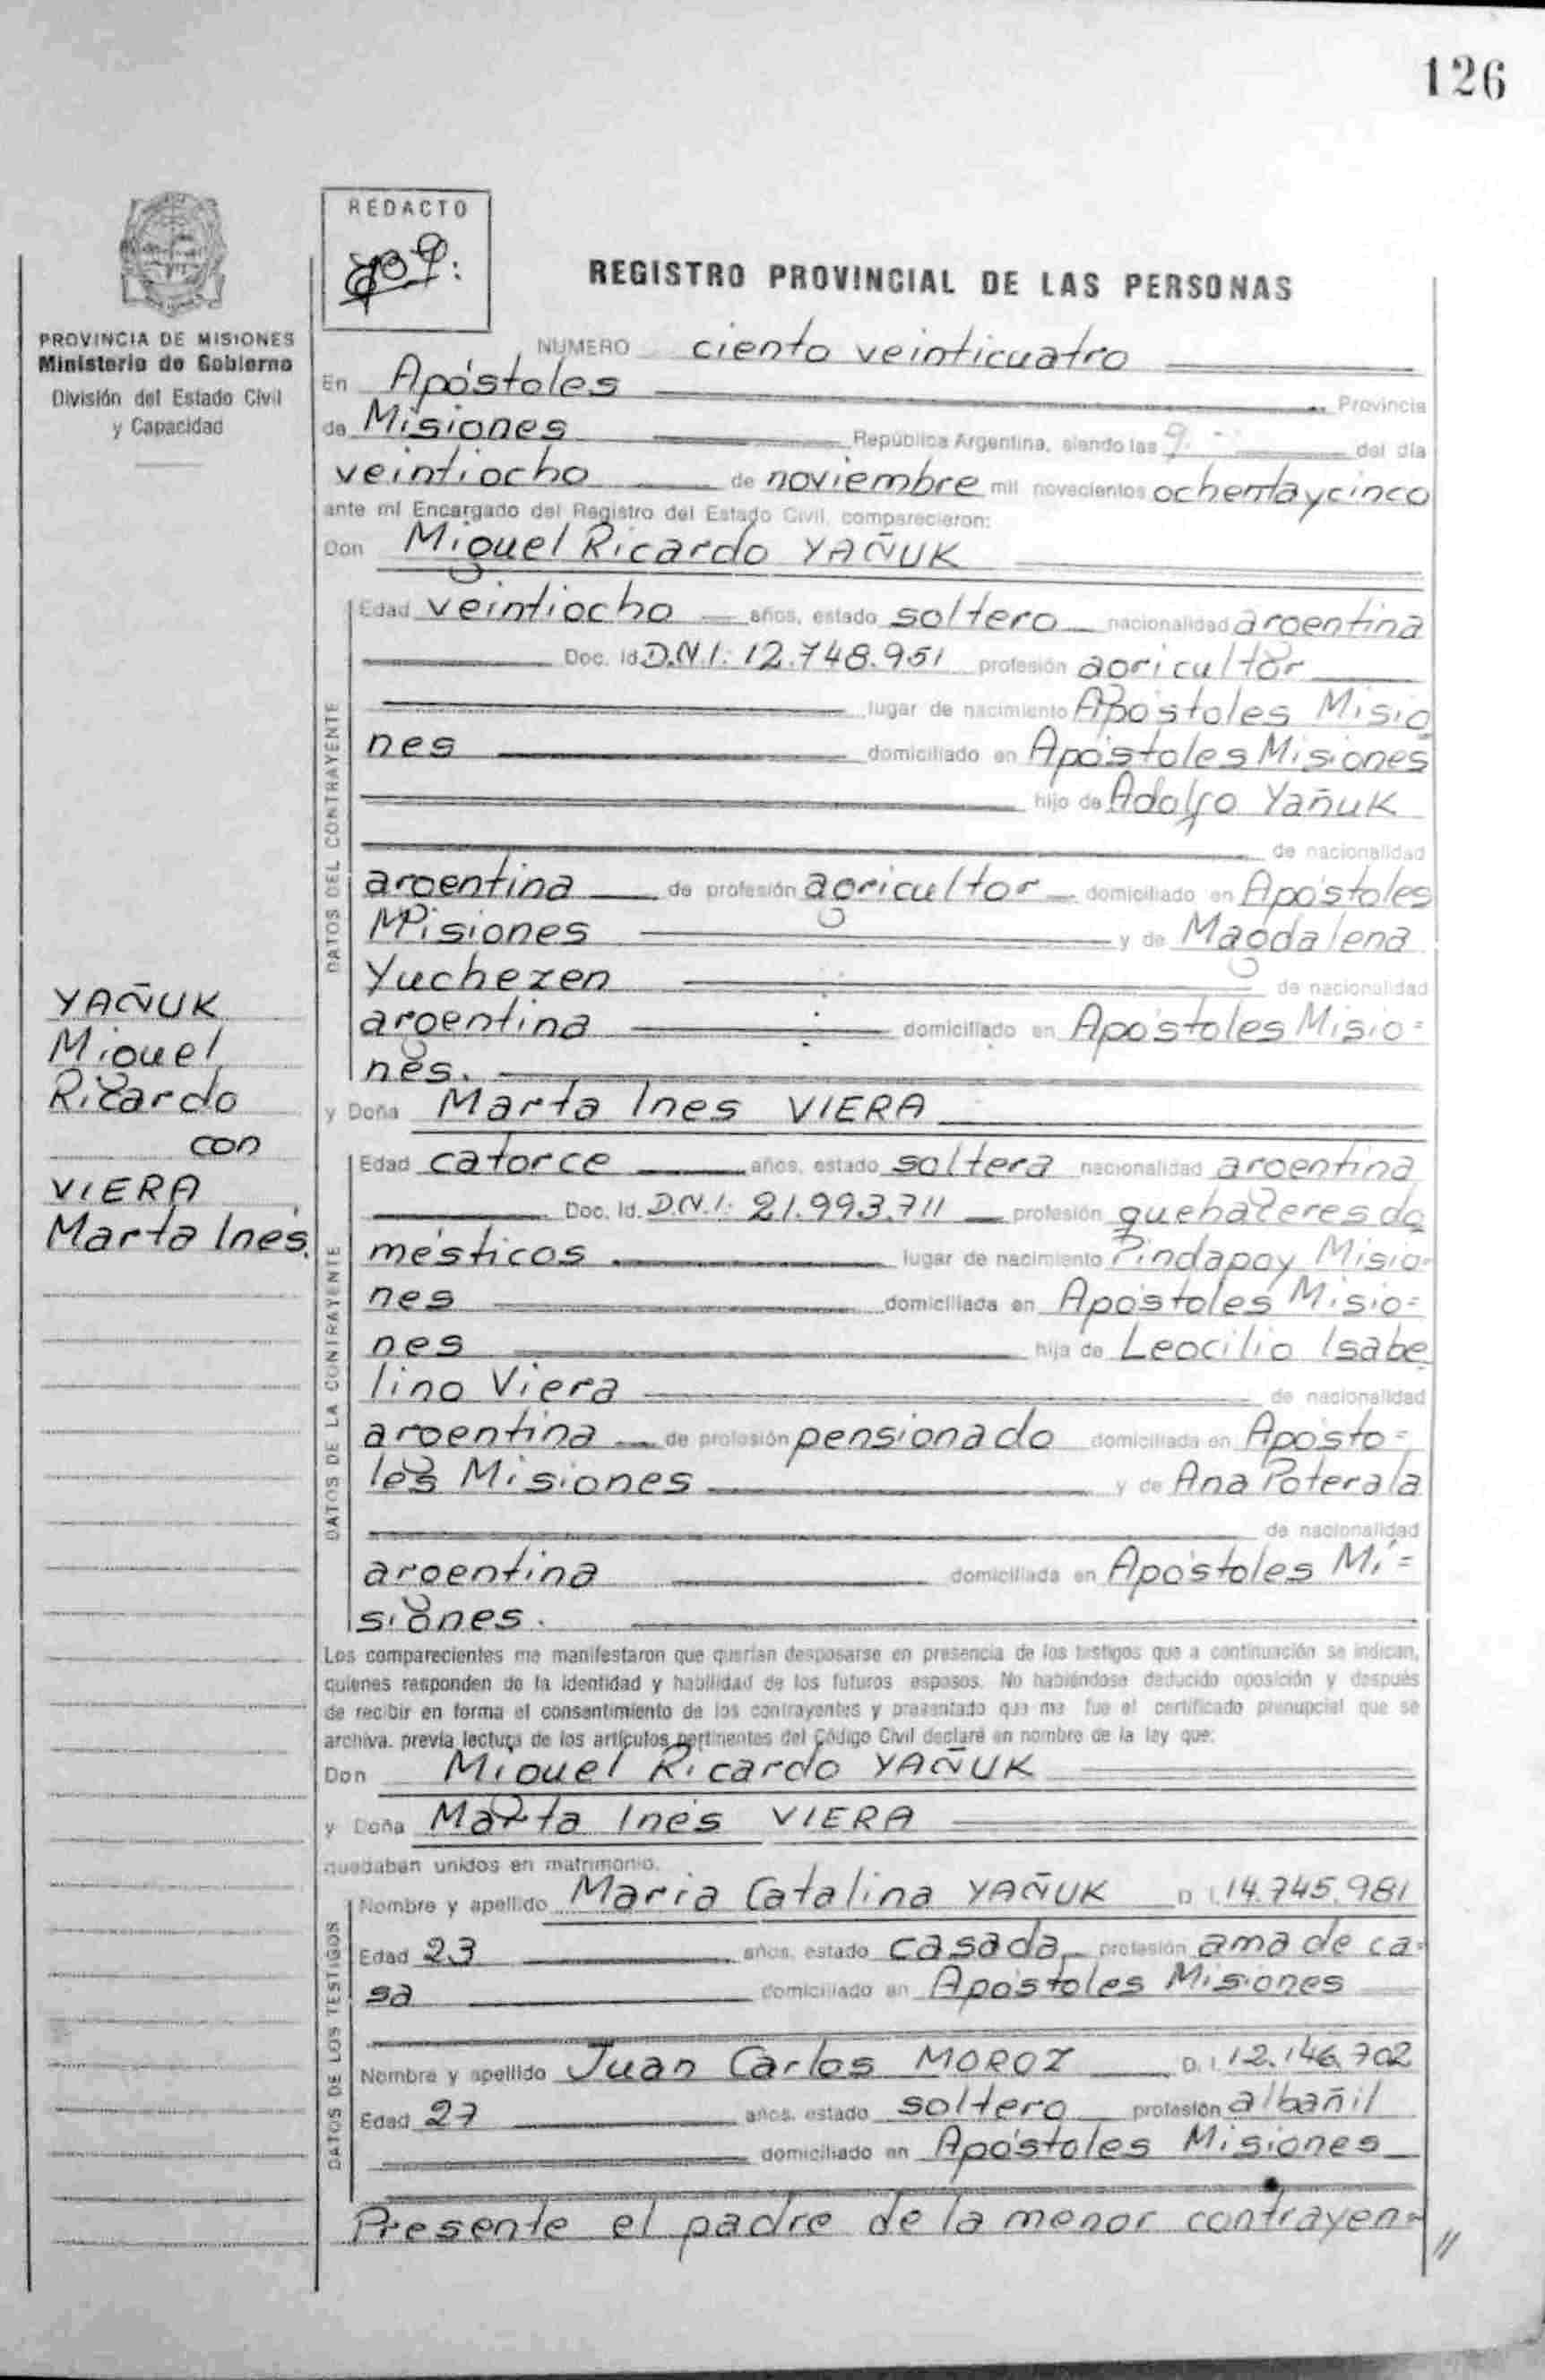 126
REDACTO
PROVINCIA DE MISIONES
Ministerio de Gobierno
División del Estado Civil
y Capacidad
REGISTRO PROVINCIAL DE LAS PERSONAS
NUMERO ciento veinticuatro
En Apóstoles Provincia
de Misiones República Argentina, siendo las 9. - del día
veintiocho de noviembre mil novecientos ochenta y cinco
ante mí Encargado del Registro del Estado Civil, comparecieron:
Don Miguel Ricardo YAÑUK
DATOS DEL CONTRAYENTE
Edad veintiocho años, estado soltero nacionalidad argentina
Doc. Id D.N.I: 12.748.951 profesión agricultor
lugar de nacimiento Apóstoles Misio
nes domiciliado en Apóstoles Misiones
hijo de Adolfo Yañuk
de nacionalidad
argentina de profesión agricultor domiciliado en Apóstoles
Misiones y de Magdalena
Yuchezen de nacionalidad
argentina domiciliado en Apóstoles Misio=
nes.
y Doña Marta Ines VIERA
DATOS DE LA CONTRAYENTE
Edad catorce años, estado soltera nacionalidad argentina
Doc. Id. D.N.I: 21.993.711 profesión quehaceres do
mésticos lugar de nacimiento Pindapoy Misio-
nes domiciliada en Apóstoles Misio=
nes hija de Leocilio Isabe
lino Viera de nacionalidad
argentina de profesión pensionado domiciliada en Aposto=
les Misiones y de Ana Poterala
de nacionalidad
argentina domiciliada en Apóstoles Mi=
siones.
Los comparecientes me manifestaron que querían desposarse en presencia de los testigos que a continuación se indican,
quienes responden de la identidad y habilidad de los futuros esposos. No habiéndose deducido oposición y después
de recibir en forma el consentimiento de los contrayentes y presentado que me fue el certificado prenupcial que se
archiva, previa lectura de los artículos pertinentes del Código Civil declaré en nombre de la ley que:
Don Miguel Ricardo YAÑUK
y Doña Marta Inés VIERA
quedaban unidos en matrimonio.
DATOS DE LOS TESTIGOS
Nombre y apellido María Catalina YAÑUK D. I. 14.745.981
Edad 23 años, estado casada profesión ama de ca=
sa domiciliado en Apóstoles Misiones
Nombre y apellido Juan Carlos MOROZ D. I. 12.146.702
Edad 27 años, estado soltero profesión albañil
domiciliado en Apóstoles Misiones
Presente el padre de la menor contrayen= //
YAÑUK
Miguel
Ricardo
con
VIERA
Marta Inés.